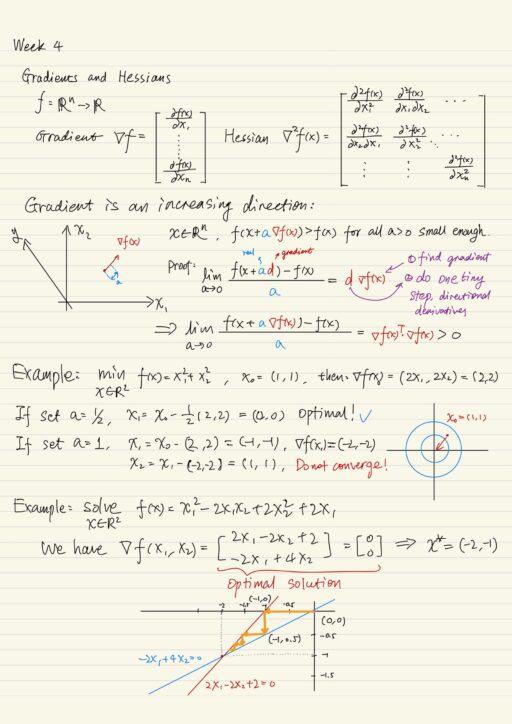 Week 4
Gradients and Hessians
f = ℝⁿ → ℝ
Gradient ∇f = [∂f(x)/∂x₁ ⋮ ∂f(x)/∂xₙ] Hessian ∇²f(x) = [∂²f(x)/∂x² ∂²f(x)/∂x₁∂x₂ ⋯ ∂²f(x)/∂x₂∂x₁ ∂²f(x)/∂x₂² ⋯ ⋮ ⋮ ∂²f(x)/∂xₙ²]
Gradient is an increasing direction:
y x₂ ∇f(x) a x₁
x∈ℝⁿ, f(x+a∇f(x))>f(x) for all a>0 small enough.
real gradient
Proof: lim a→0 (f(x+ad)-f(x))/a = d ∇f(x)
① find gradient
② do one tiny
step, directional
derivatives
⇒ lim a→0 (f(x+a∇f(x))-f(x))/a = ∇f(x)ᵀ·∇f(x) > 0
Example: min x∈ℝ² f(x)=x₁²+x₂², x₀=(1,1), then: ∇f(x)=(2x₁,2x₂)=(2,2)
If set a=½, x₁=x₀-½(2,2)=(0,0) Optimal! ✓
x₀=(1,1)
If set a=1, x₁=x₀-(2,2)=(-1,-1), ∇f(x₁)=(-2,-2)
x₂=x₁-(-2,-2)=(1,1), Do not converge!
Example: solve x∈ℝ² f(x)=x₁²-2x₁x₂+2x₂²+2x₁
We have ∇f(x₁,x₂)=[2x₁-2x₂+2 -2x₁+4x₂]=[0 0] ⇒ x*=(-2,-1)
Optimal solution
(-1,0)
-2 -1.5 -1 -0.5
(0,0)
(-1,-0.5) -0.5
-2x₁+4x₂=0 -1
2x₁-2x₂+2=0 -1.5